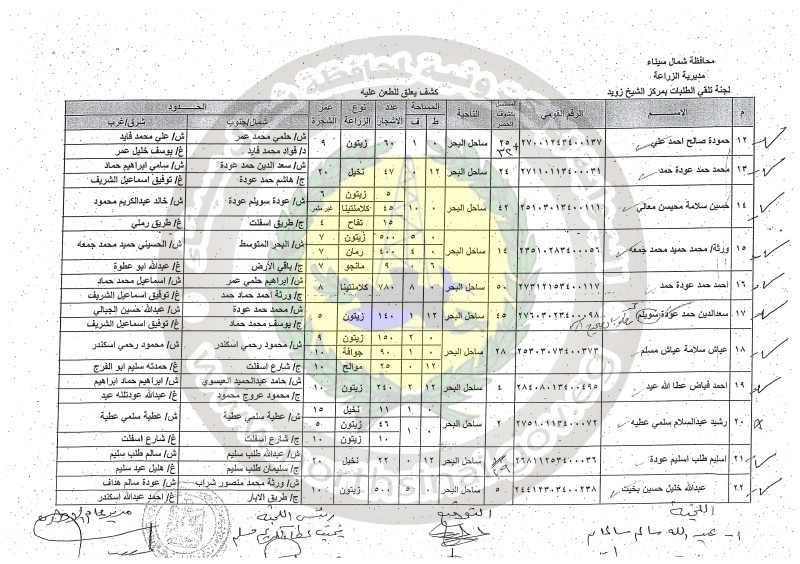 محافظة شمال سيناء
مديرية الزراعة
لجنة تلقي الطلبات بمركز الشيخ زويد
كشف يعلق للطعن عليه
م الاســـم الرقم القومي الناحية المساحة ط ف عدد الاشجار نوع الزراعة عمر الشجرة الحدود شمال/جنوب شرق/غرب
١٢ حمودة صالح احمد علي ٢٧٠٠١٢٤٣٤٠٠١٣٧ ٢٥ + ٣٢ ساحل البحر ١ ٦٠ زيتون ٩ ش/ حلمي محمد عمر ش/ علي محمد فايد
د/ فواد محمد فايد غ/ يوسف خليل عمر
١٣ محمد حمد عودة حمد ٢٧١١٠١١٣٤٠٠٠٣١ ٢٤ ساحل البحر ١٢ ٠ ٤٧ نخيل ٢٠ ش/ سعد الدين حمد عودة ش/ سامي ابراهيم حماد
ج/ هاشم حمد عودة غ/ توفيق اسماعيل الشريف
١٤ حسين سلامة محيسن معالي ٢٥١٠٣٠١٣٤٠٠١١١ ٤٢ ساحل البحر ٠ ١٠ ٥ زيتون ٦ ش/ عودة سويلم عودة ش/ خالد عبدالكريم محمود
٤٥ كلامنتينا غير مثمر
١٥ تفاح ٤ ج/ طريق اسفلت غ/ طريق رملي
١٥ ورثة/ محمد حميد محمد جمعه ٢٣٥١٠٢٨٣٤٠٠٠٥٦ ١٤ ساحل البحر ٠ ٥ ٥٠٠ زيتون ٧ ش/ البحر المتوسط ش/ الحسيني حميد محمد جمعه
٠ ٤ ٤٠٠ رمان ٧
٦ ٩ مانجو ٧ ج/ باقي الأرض غ/ عبدالله ابو عطوة
١٦ احمد حمد عودة حمد ٢٧٣١٢١٥٣٤٠٠١١٧ ٥٠ ساحل البحر ٠ ٨ ٧٨٠ كلامنتينا ٨ ش/ ابراهيم حلمي عمر ش/ اسماعيل محمد حماد
ج/ ورثة احمد حماد حمد غ/ توفيق اسماعيل الشريف
١٧ سعدالدين حمد عودة سويلم ٢٧٦٠٣٠٢٣٤٠٠٠٩٨ ٤٥ ساحل البحر ١٢ ١ ١٤٠ زيتون ٥ ش/ محمد حمد عودة ش/ عبدالله حسين الجبالي
ج/ يوسف محمد حماد غ/ توفيق اسماعيل الشريف
١٨ عياش سلامة عياش مسلم ٢٥٣٠٣٠٧٣٤٠٠٣٧٣ ٢٨ ساحل البحر ٠ ٢ ١٥٠ زيتون ٩ ش/ محمود رحمي اسكندر ش/ محمود رحمي اسكندر
٠ ١ ٩٠ جوافة ١٠
١٢ ٠ ٢٥ موالح ١٠ ج/ شارع اسفلت غ/ حمدته سليم ابو الفرج
١٩ احمد فياض عطا الله عيد ٢٨٤٠٨٠١٣٤٠٠٤٩٥ ٤ ساحل البحر ١٢ ٢ ٢٤٠ زيتون ١٠ ش/ حامد عبدالحميد العيسوي ش/ ابراهيم حماد ابراهيم
ج/ محمود عروج محمود غ/ عبدالله عودتلله عيد
٢٠ رشيد عبدالسلام سلمي عطيه ٢٧٥١٠١١٣٤٠٠٠٧٢ ٢ ساحل البحر ٠ ١ ١١ نخيل ١٥ ش/ عطية سلمي عطية ش/ عطية سلمي عطية
٠ ١ ٤٦ زيتون ٥
١٠ زيتون ١٠ ج/ شارع اسفلت غ/ شارع اسفلت
٢١ اسليم طلب اسليم عودة ٢٦٨١١٢٥٣٤٠٠٠٣٦ ساحل البحر ١٢ ٠ ٢٢ نخيل ٢٠ ش/ عبدالله طلب سليم ش/ سالم طلب سليم
ج/ سليمان طلب سليم غ/ هليل عيد سليم
٢٢ عبدالله خليل حسين بخيت ٢٤٤١٢٣٠٣٤٠٠٢٣٨ ٥ ساحل البحر ٠ ٥ ٥٠٠ زيتون ١٠ ش/ ورثة محمد منصور شراب ش/ عودة سالم هداف
ج/ طريق الابار غ/ احمد عبدالله اسكندر
اللجنة التوجيه رئيس اللجنة مدير عام الزراعة